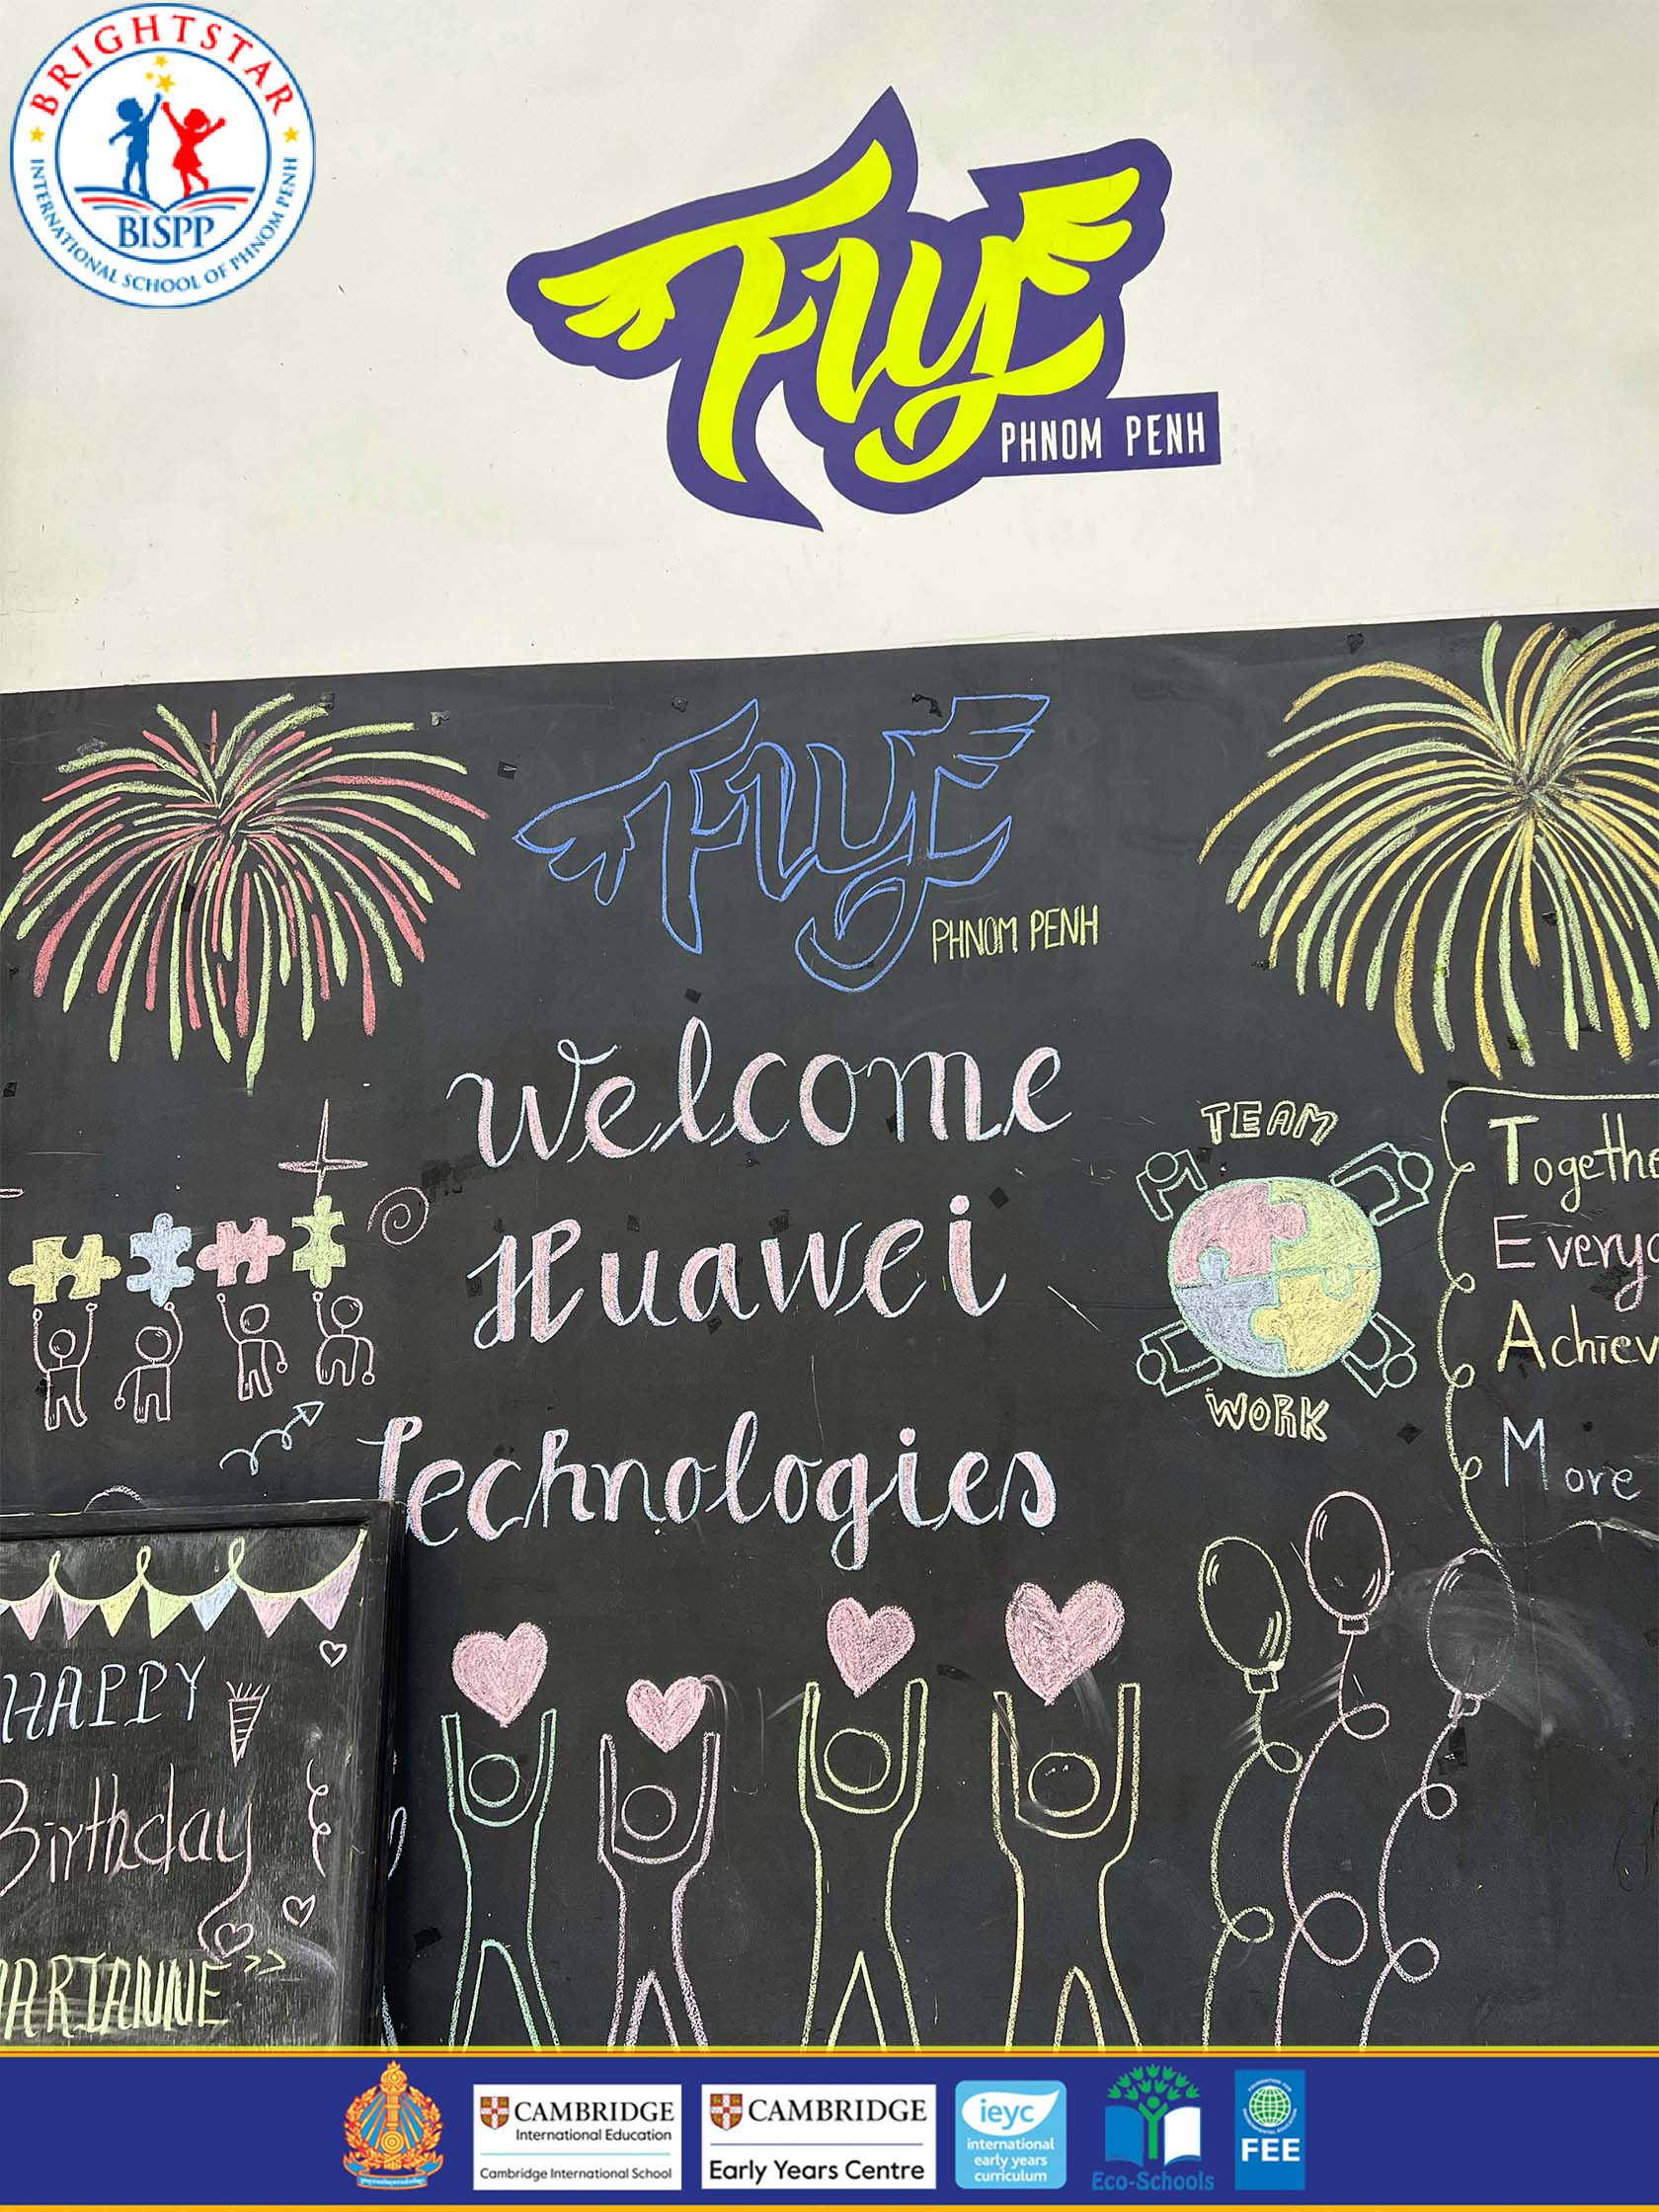 BRIGHTSTAR
INTERNATIONAL SCHOOL OF PHNOM PENH
BISPP
Fly
PHNOM PENH
Fly
PHNOM PENH
Welcome
Huawei
Technologies
TEAM
WORK
Togethe
Everyo
Achiev
More
HAPPY
Birthday
ARIANNE
CAMBRIDGE
International Education
Cambridge International School
CAMBRIDGE
Early Years Centre
ieyc
international
early years
curriculum
Eco-Schools
FEE